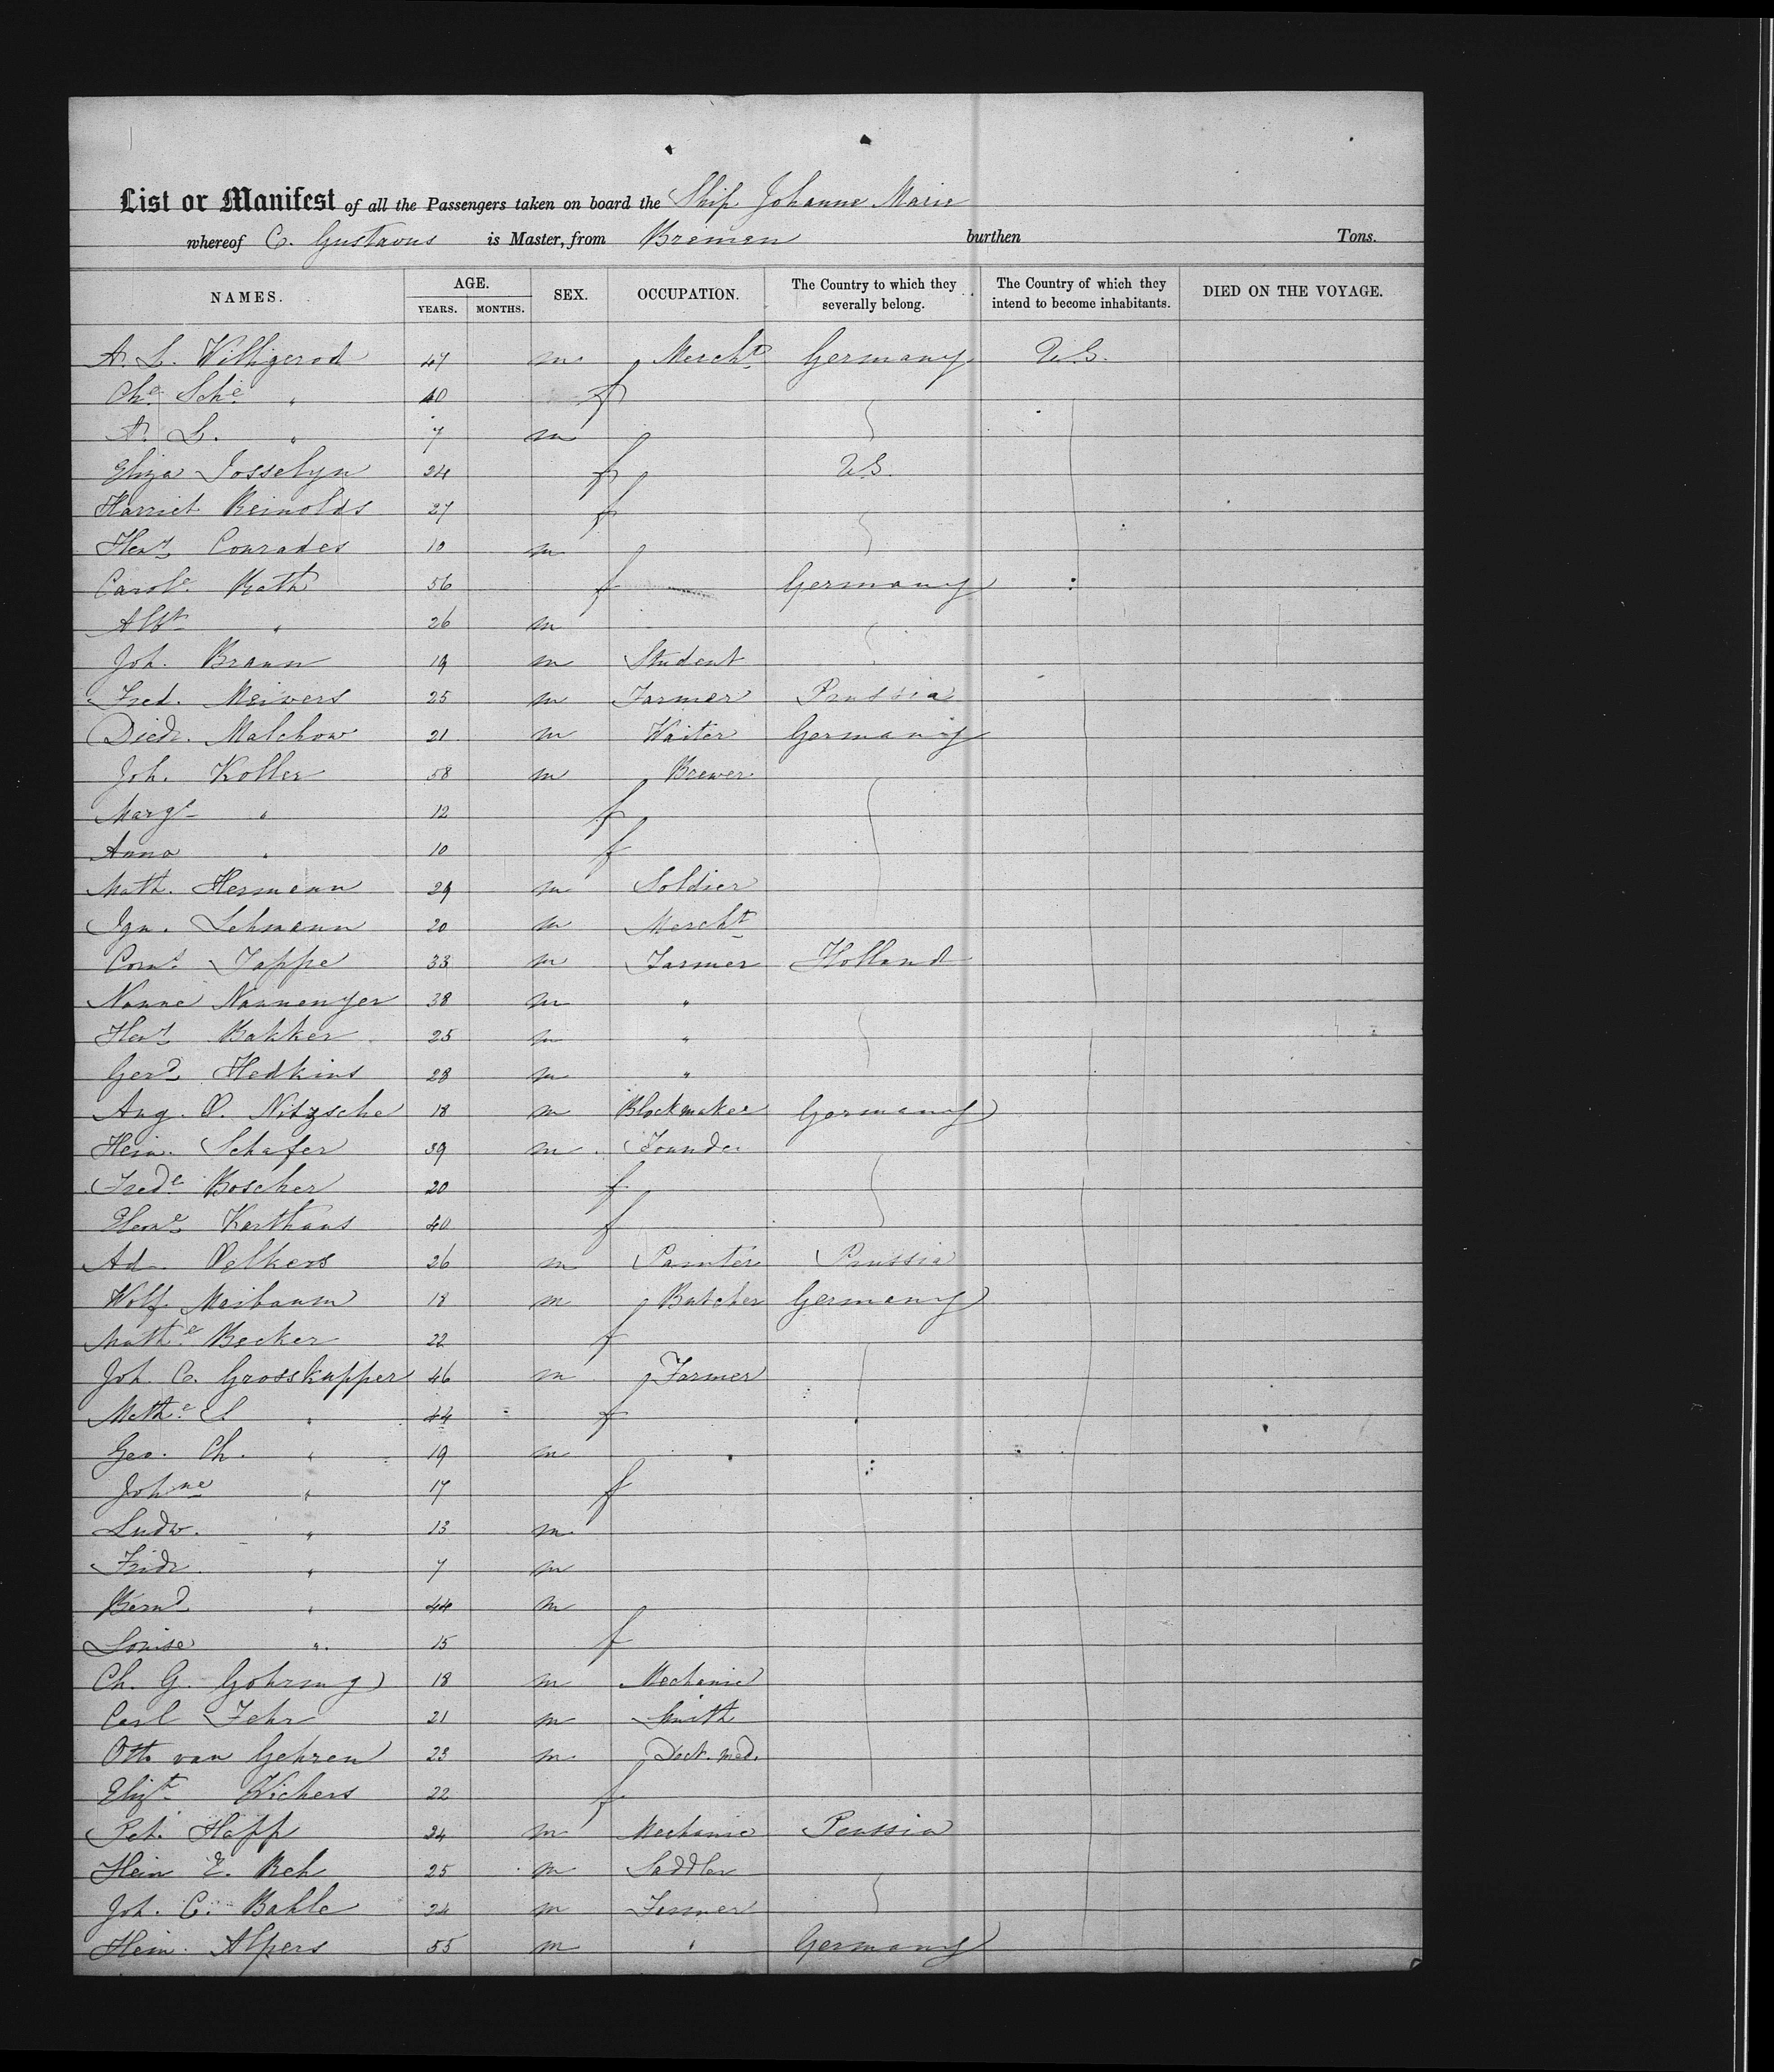 List or Manifest of all the Passengers taken on board the Ship Johanne Marie
whereof C. Gustavus is Master, from Bremen burthen Tons.
NAMES. AGE. YEARS. MONTHS. SEX. OCCUPATION. The Country to which they severally belong. The Country of which they intend to become inhabitants. DIED ON THE VOYAGE.
A. L. Willigerod 47 m Mercht Germany U.S.
Che Sche " 40 f
A. L. " 7 m
Eliza Josselyn 24 f U.S.
Harriet Reinolds 27 f
Hen Conrades 10 m
Carole Rath 56 f Germany
Albt " 26 m
Joh. Braun 19 m Student
Fred. Meivers 25 m Farmer Prussia
Diedr. Malchow 21 m Waiter Germany
Joh. Koller 58 m Brewer
Marge " 12 f
Anna " 10 f
Math. Hermann 29 m Soldier
Ign. Lehmann 20 m Mercht
Corns Tappe 33 m Farmer Holland
Nanne Nannenger 38 m "
Hen Bakker 25 m "
Gerd Hedkins 28 m "
Aug. O. Nitzsche 18 m Blockmaker Germany
Hein. Schafer 39 m Founder
Frede Boscher 20 f
Elene Karthaus 40 f
Ad. Oelkers 26 m Painter Prussia
Wolf. Maibaum 18 m Butcher Germany
Mathe Becker 22 f
Joh. C. Grosskupper 46 m Farmer
Methe E. " 44 f
Geo. Ch. " 19 m
Johne " 17 f
Ludw. " 13 m
Fridr. " 7 m
Bernd " 44 m
Louise " 15 f
Ch. G. Gohring 18 m Mechanic
Carl Fehr 21 m Smith
Otto van Gehren 23 m Doct. med.
Elizt Wichers 22 f
Pet. Happ 24 m Mechanic Prussia
Hein E. Reh 25 m Saddler
Joh. C. Bahle 24 m Farmer
Hein. Alpers 55 m " Germany